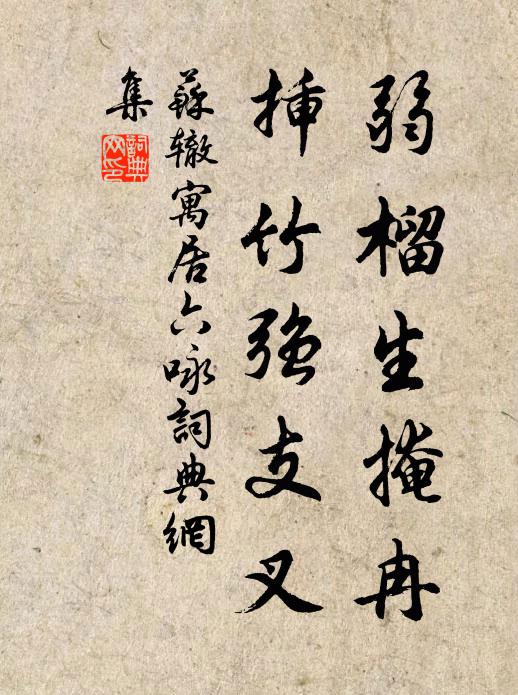 弱榴生掩冉
挿竹強支叉
蘇辙寓居六咏詞典網
集
詞典网印